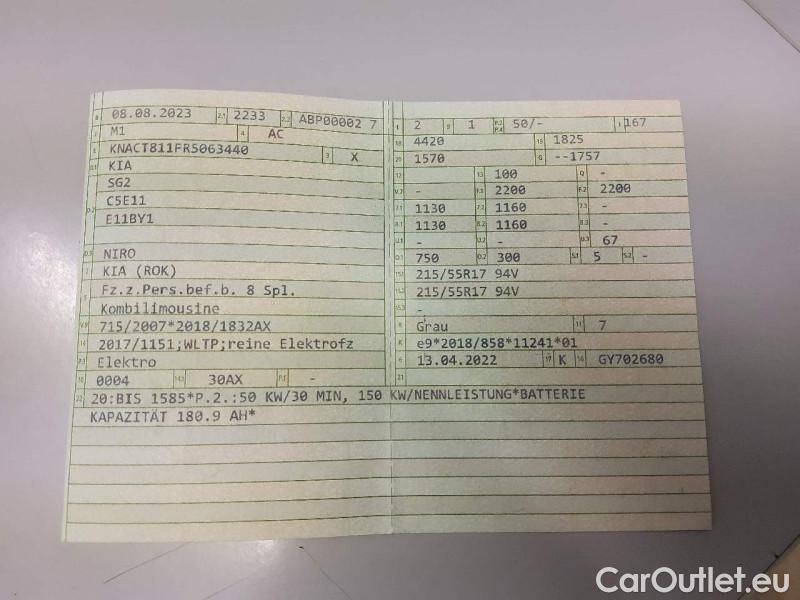 B 08.08.2023 2.1 2233 2.2 ABP00002 7
J M1 4 AC
E KNACT811FR5063440 3 X
D.1 KIA
SG2
D.2 C5E11
E11BY1
D.3 NIRO
2 KIA (ROK)
5 Fz.z.Pers.bef.b. 8 Spl.
Kombilimousine
V.9 715/2007*2018/1832AX
14 2017/1151;WLTP;reine Elektrofz
P.3 Elektro
10 0004 14.1 30AX P.1 -
L 2 9 1 P.2 P.4 50/- T 167
18 4420 19 1825
20 1570 G --1757
12 13 100 Q -
V.7 - F.1 2200 F.2 2200
7.1 1130 7.2 1160 7.3 -
8.1 1130 8.2 1160 8.3 -
U.1 - U.2 - U.3 67
O.1 750 O.2 300 S.1 5 S.2 -
15.1 215/55R17 94V
15.2 215/55R17 94V
15.3 -
R Grau 11 7
K e9*2018/858*11241*01
6 13.04.2022 17 K 16 GY702680
21
22 20:BIS 1585*P.2.:50 KW/30 MIN, 150 KW/NENNLEISTUNG*BATTERIE
KAPAZITÄT 180.9 AH*
CarOutlet.eu